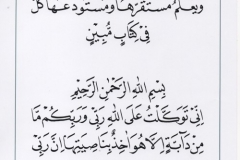 ويعلم مستقرها ومستودعها كل
في كتاب مبين
بسم الله الرحمن الرحيم
إني توكلت على الله ربي وربكم ما
من دابة إلا هو آخذ بناصيتها إن ربي